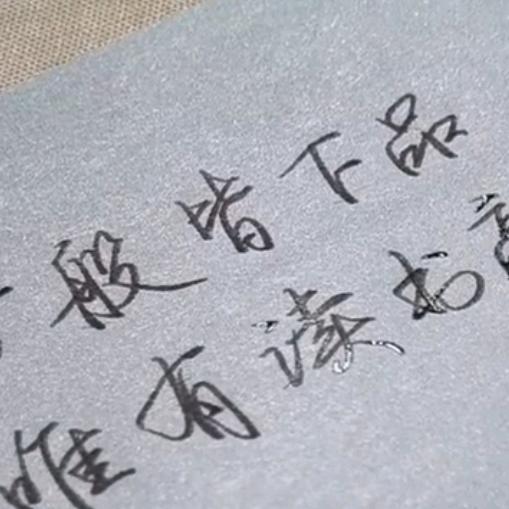 般皆下品
唯有读书高